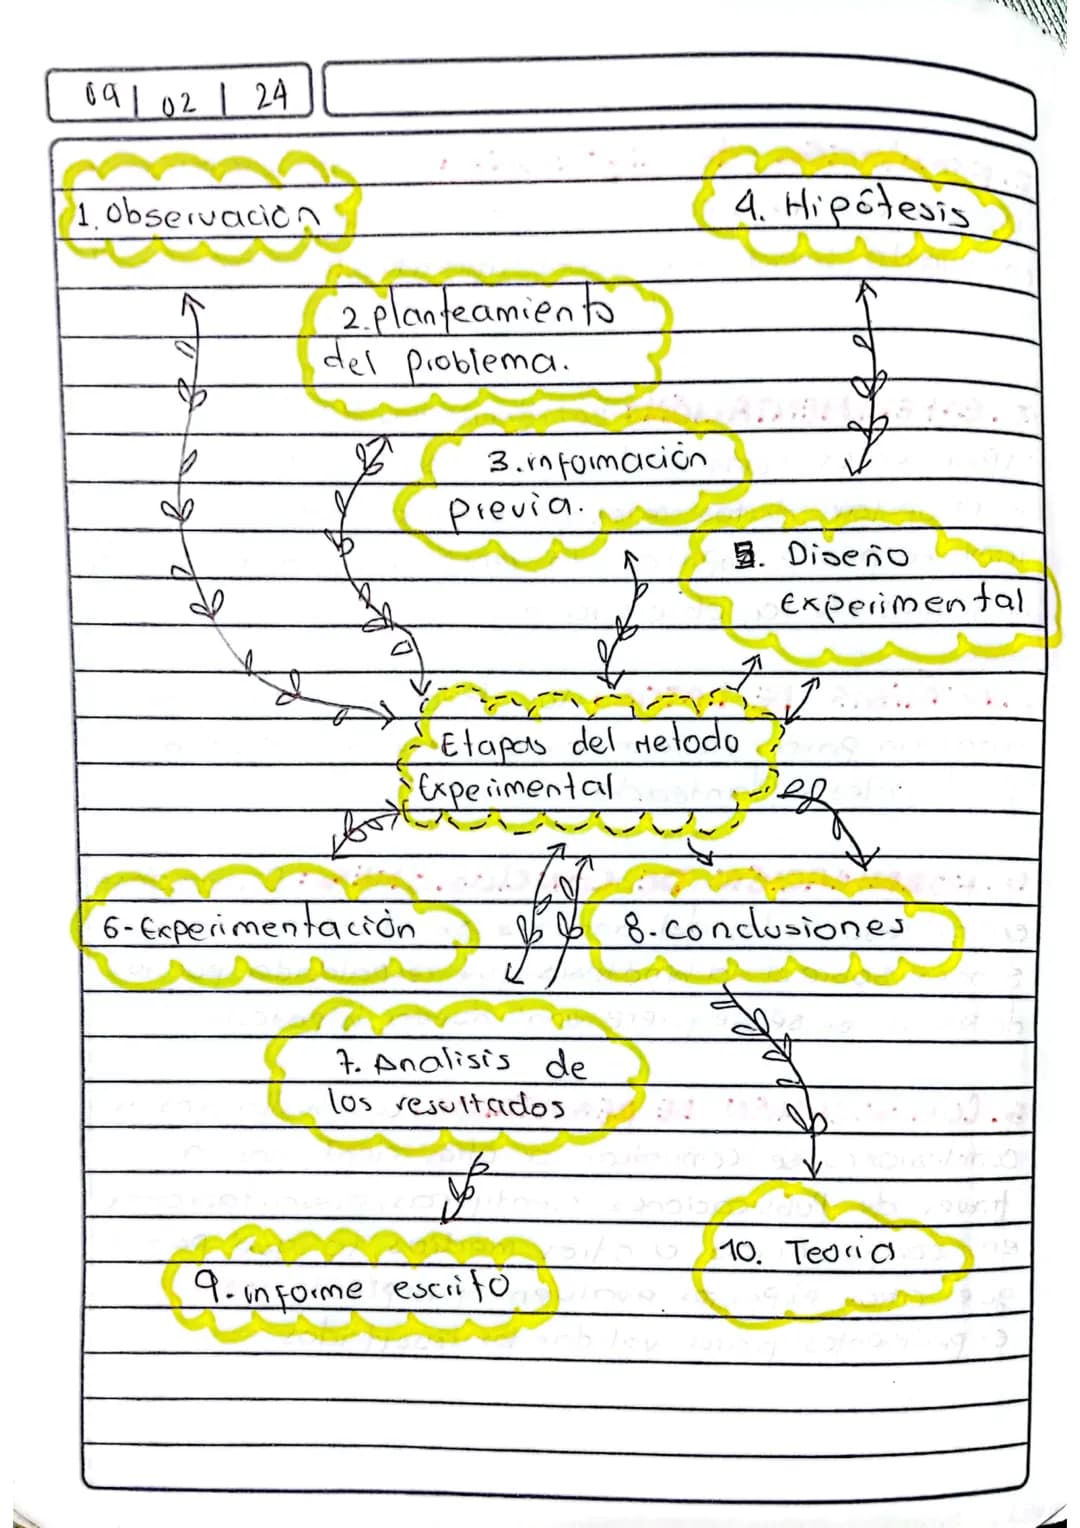 09 | 02 | 24
1. Observación
4. Hipótesis
2. planteamiento
del problema.
3. información
previa.
5. Diseño
experimental
Etapas del Metodo
Experimental
6- Experimentación
8. conclusiones
7. Analisis de
los resultados
9. informe escrito
10. Teoria